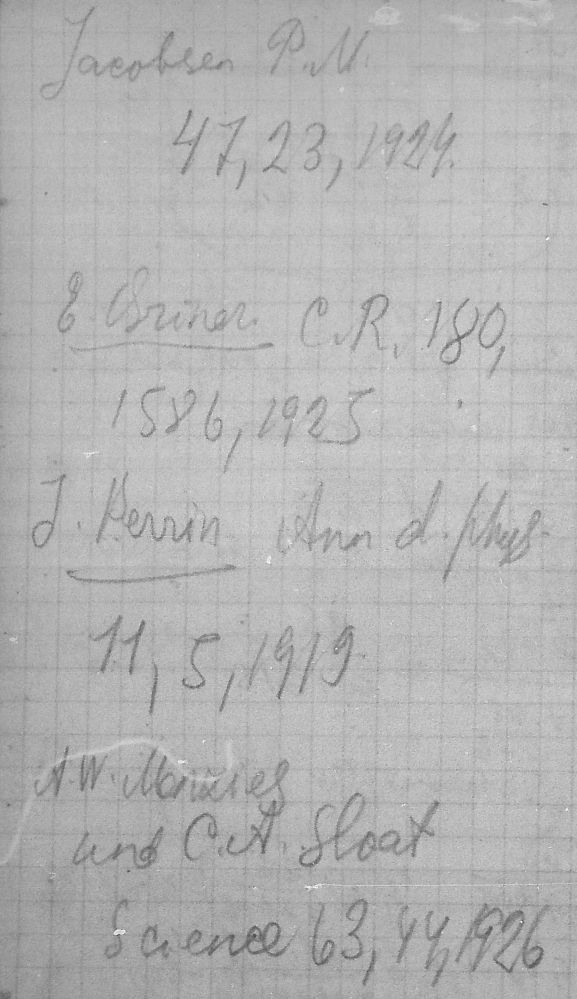 Jacobsen P.M.
47, 23, 1924.
E. Briner. C.R. 180,
1586, 1925
J. Perrin Ann d. phys.
11, 5, 1919
A.W. Menzies
und C.A. Sloat
Science 63, 44, 1926